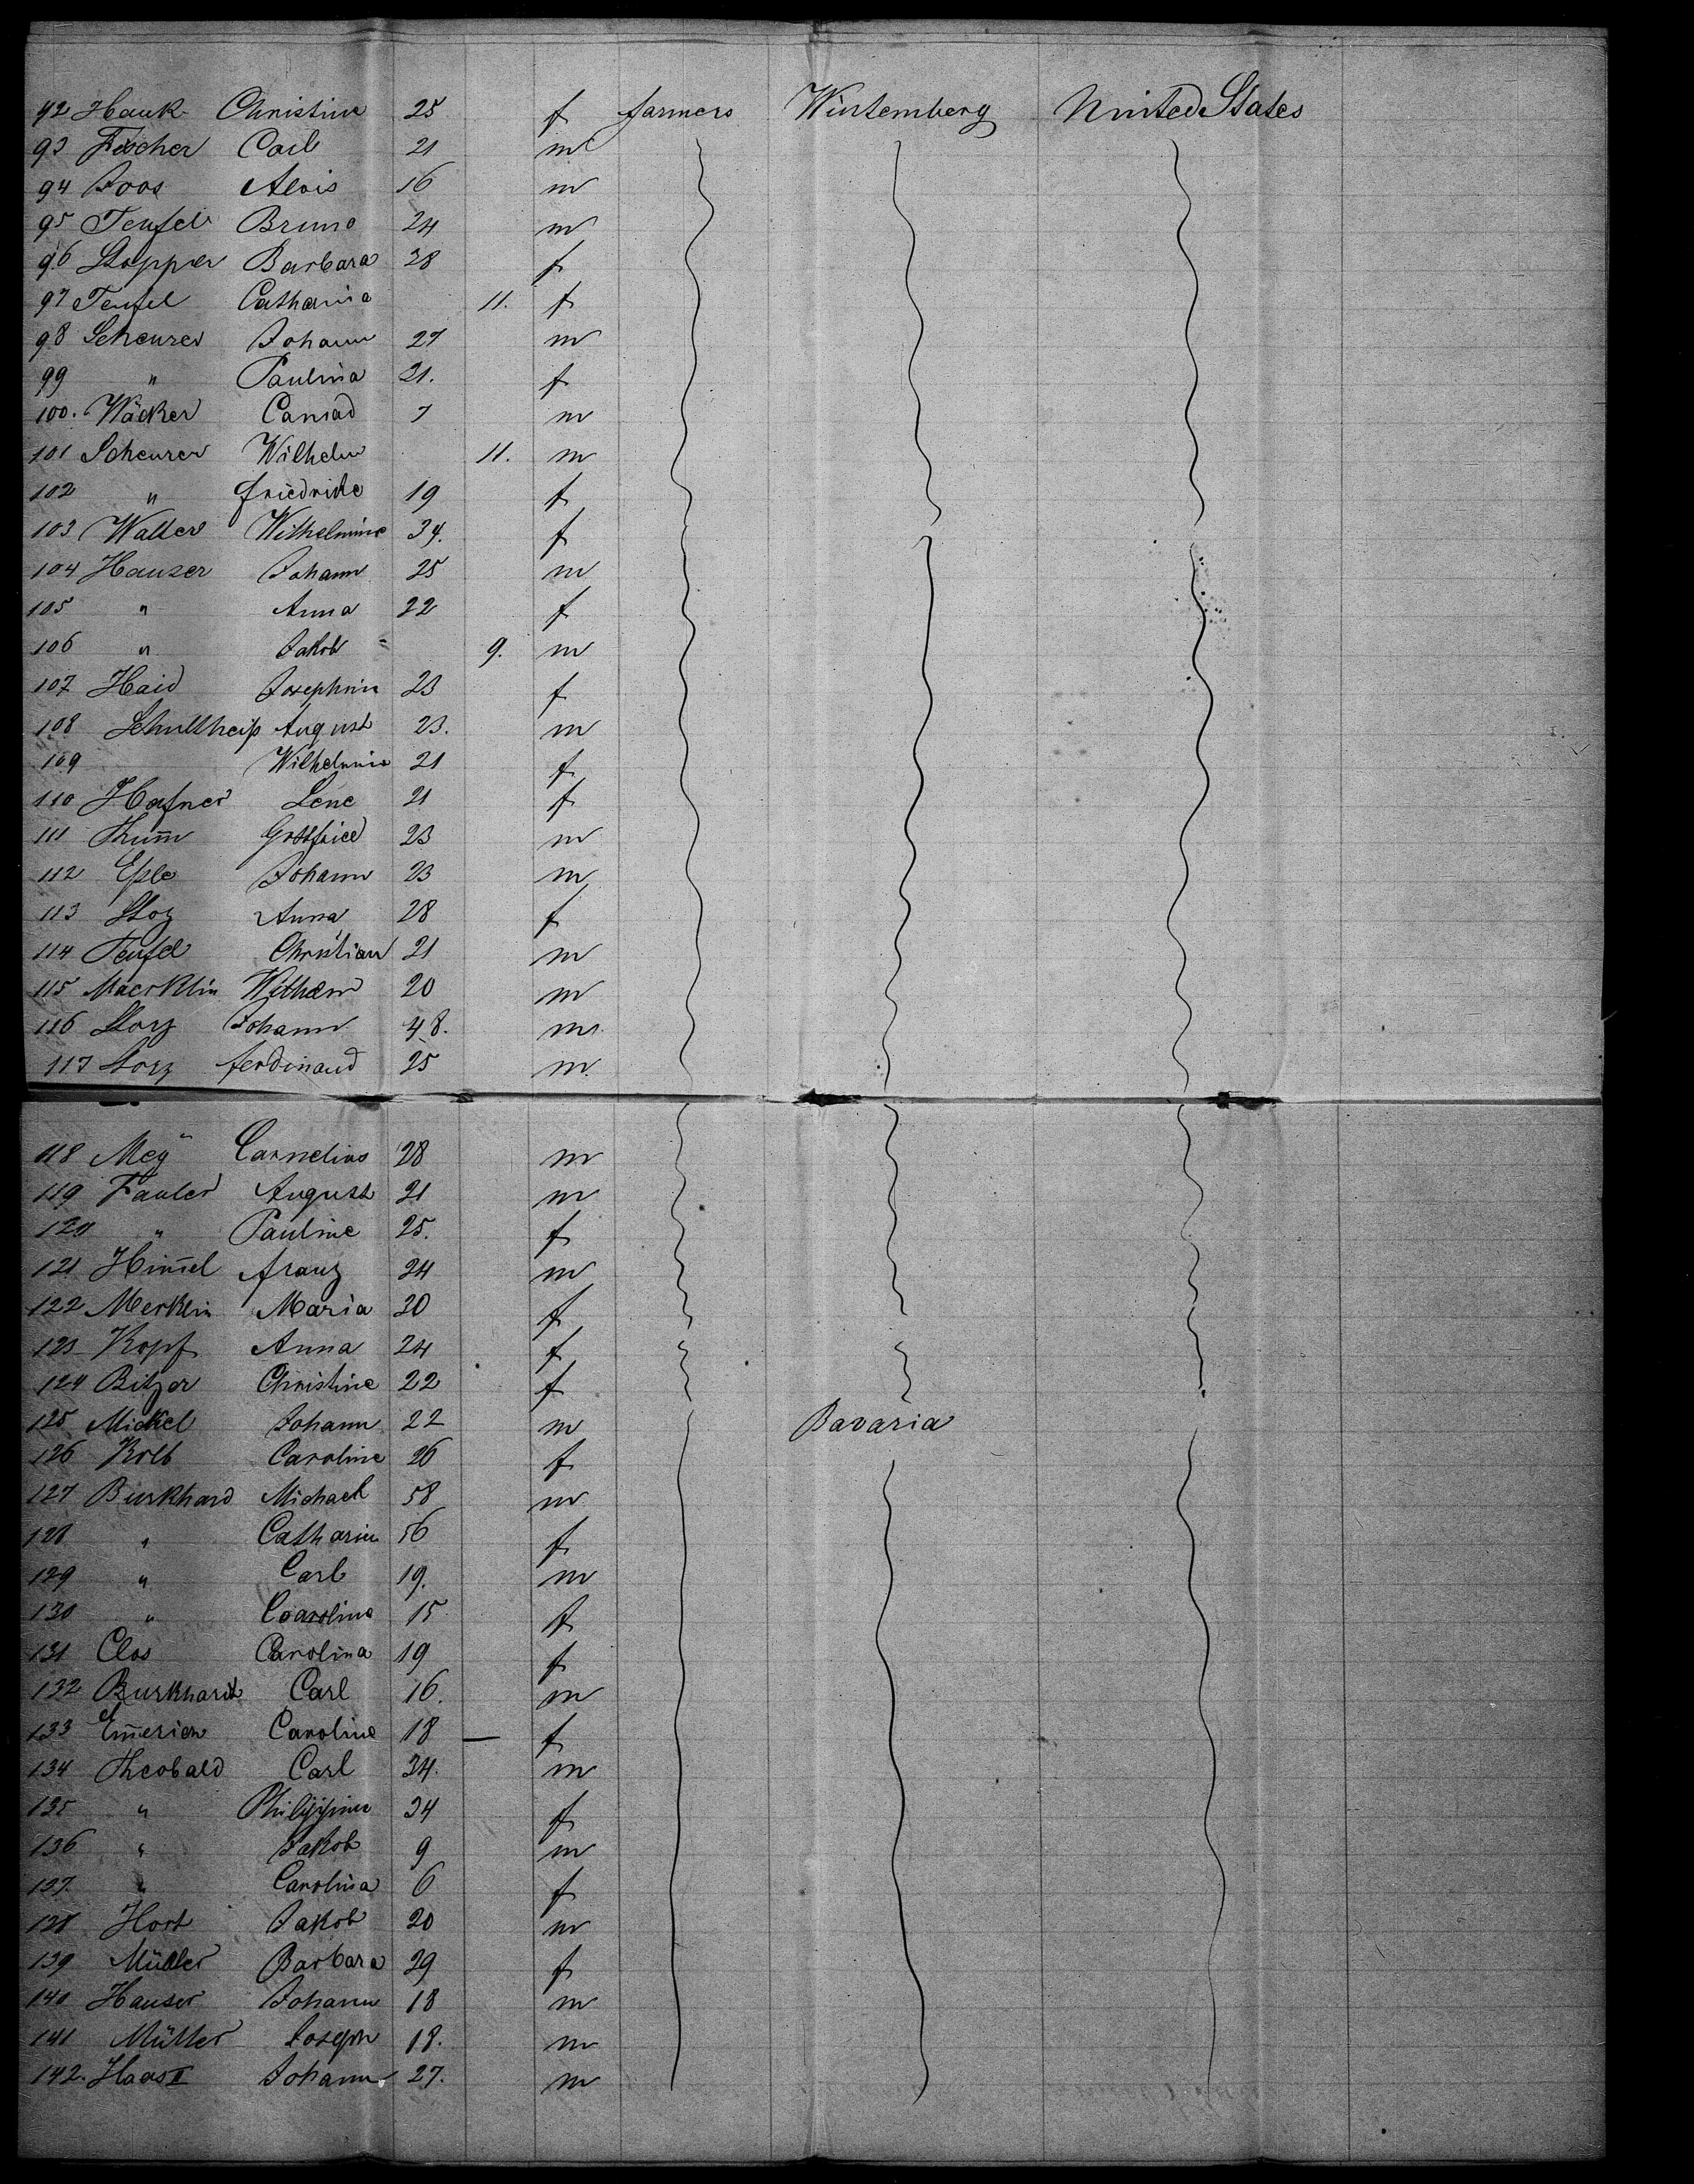 92 Hauk Christine 25 f farmers Würtemberg United States
93 Fischer Carl 21 m
94 Joos Alois 16 m
95 Teufel Bruno 24 m
96 Stopper Barbara 28 f
97 Teufel Catharina 11. f
98 Scheurer Johann 27 m
99 " Paulina 21. f
100. Wäcker Conrad 7 m
101 Scheurer Wilhelm 11. m
102 " Friedrike 19 f
103 Walter Wilhelmine 34. f
104 Hauser Johann 25 m
105 " Anna 22 f
106 " Jakob 9. m
107 Haid Josephine 23 f
108 Schultheiß August 23. m
109 Wilhelmine 21 f
110 Hafner Lene 21 f
111 Kum̅ Gottfried 23 m
112 Eßle Johann 23 m
113 Stoz Anna 28 f
114 Teufel Christian 21 m
115 Maerklin Wilhelm 20 m
116 Storz Johann 48. m
117 Storz Ferdinand 25 m.
118 Mey Cornelius 28 m
119 Fauler August 21 m
120 " Pauline 25. f
121 Him̅el Franz 24 m
122 Merklin Maria 20 f
123 Kopf Anna 24 f
124 Bitzer Christine 22 f
125 Mickel Johann 22 m Bavaria
126 Kolb Caroline 26 f
127 Burkhard Michael 58 m
128 " Catharin 56 f
129 " Carl 19. m
130 " Caroline 15 f
131 Clos Carolina 19 f
132 Burkhardt Carl 16. m
133 Em̅erich Caroline 18 — f
134 Theobald Carl 34. m
135 " Philippine 34 f
136 " Jakob 9 m
137. " Carolina 6 f
138 Hort Jakob 20 m
139 Müller Barbara 29 f
140 Hauser Johann 18 m
141 Müller Joseph 18. m
142. Haas II Johann 27. m